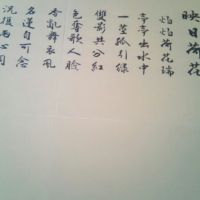 映日荷花
灼灼荷花瑞
亭亭出水中
一莖孤引綠
雙影共分紅
色奪歌人臉
香亂舞衣風
名蓮自可念
況復兩心同